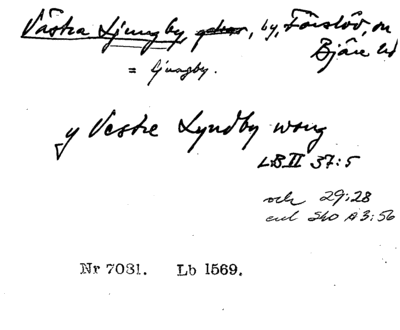 Västra Ljungby, by, Förslöv, sn
Bjäre hd
= Ljungby.
y Vestre Lyndby wong
LB II 37:5
och 29:28
enl Sko A 3:56
Nr 7031. Lb 1569.